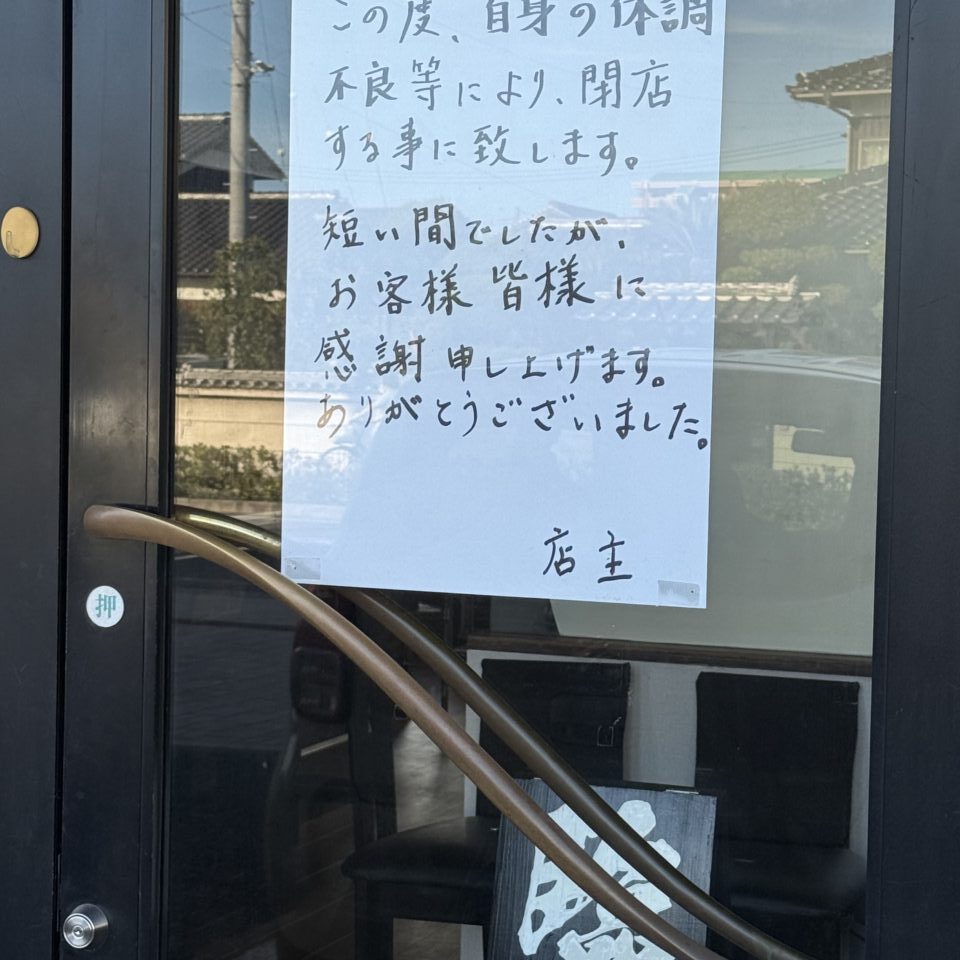 この度、自身の体調
不良等により、閉店
する事に致します。
短い間でしたが、
お客様皆様に
感謝申し上げます。
ありがとうございました。
店主
押